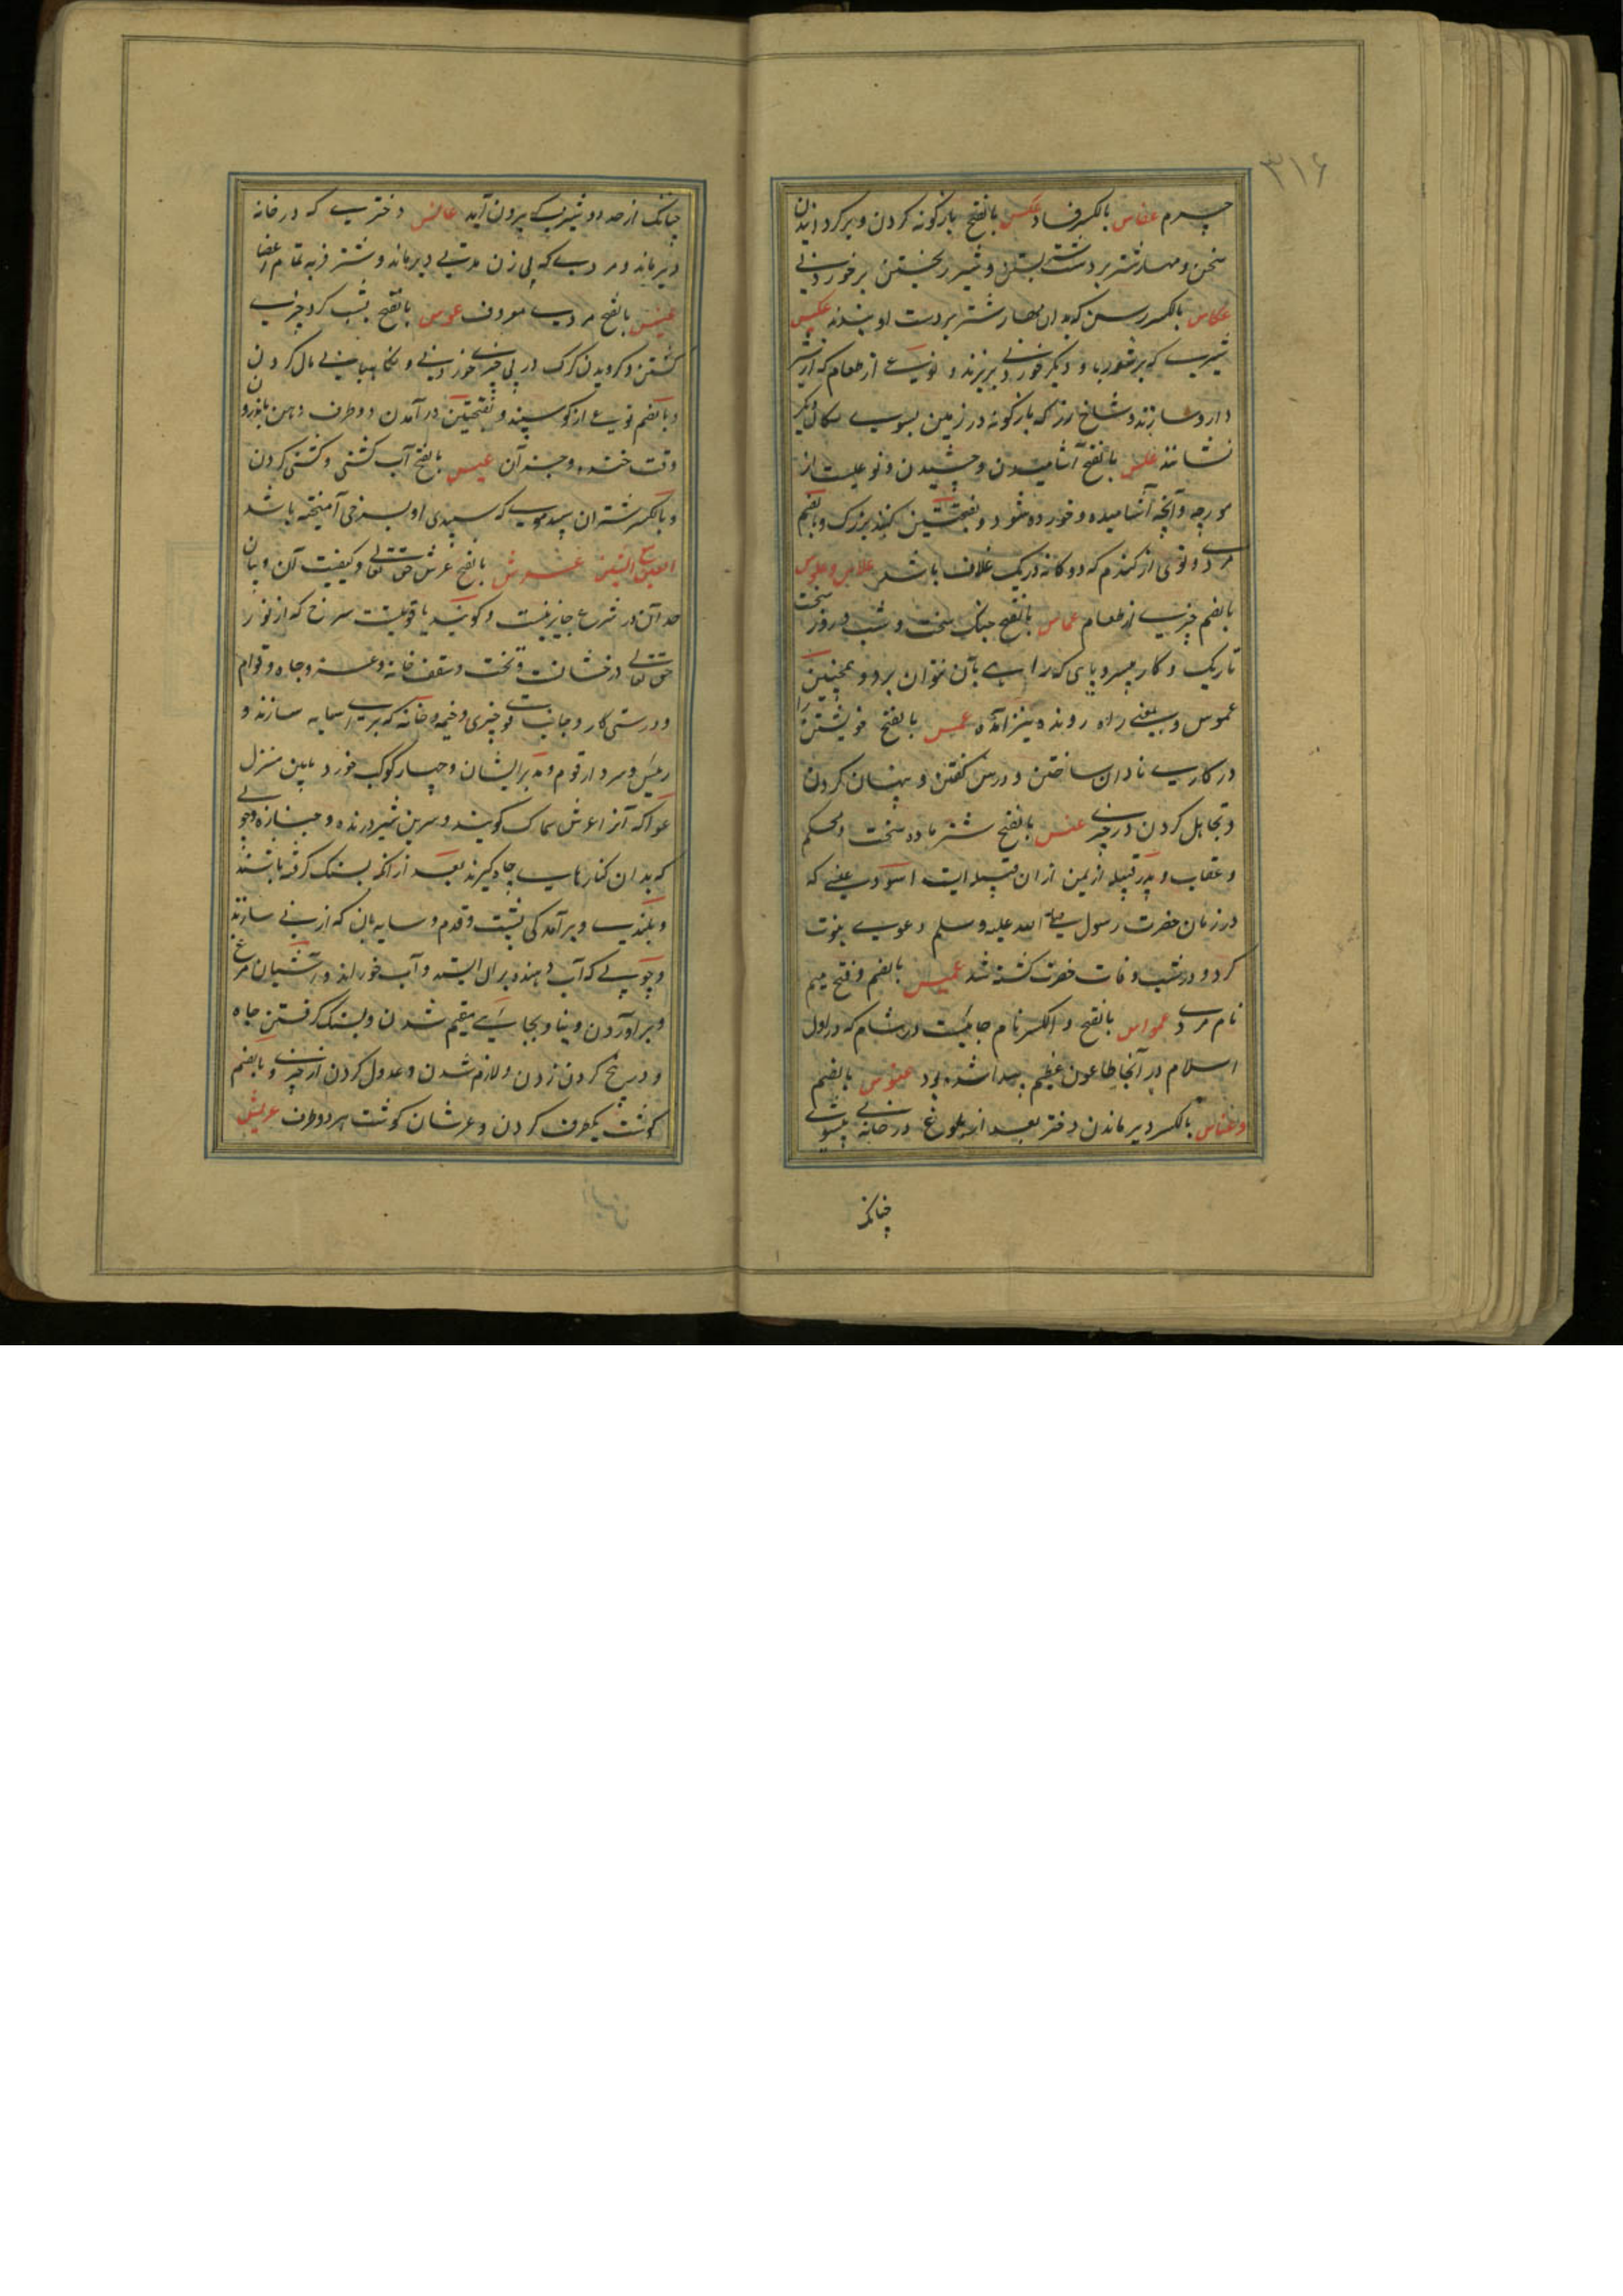 ۳۱۶
چرم عفاس بالکسر فساد عکس بالفتح بازگونه کردن و برگردانیدن
سخن و مهار شتر بر دست شتر بستن و شیر ریختن بر خوردنی
عکاس بالکسر رسن که بدان مهار شتر بر دست او بندند عکیس
شیری که بر شوربا و دیگر خوردنی بریزند و نوعی از طعام که از شیر
دارد سازند و شاخ رز که بازگونه در زمین بسوی مکان دیگر
نشانند علس بالفتح آشامیدن و چشیدن و نوعیست از
مورچه و آنچه آشامیده و خورده شود و بفتحتین کنه بزرک و بالضم
مردی و نوعی از کندم که دو کانه در یک غلاف باشد علاس و علوس
بالضم چیزی از طعام عماس بالفتح جنک سخت و شب و روز سخت
تاریک و کار بی سر و پای که راهی بآن نتوان برد و همچنین
عموس و بمعنی راه رونده نیز آمده عمس بالفتح خویشتن را
در کاری نادان ساختن و درس گفتن و پنهان کردن
و تجاهل کردن در چیزی عنس بالفتح شتر ماده سخت و محکم
و عقاب و پدر قبیله از یمن از ان قبیله است اسود عنسی که
در زمان حضرت رسول صلی الله علیه و سلم دعوی نبوت
کرد و در شب وفات حضرت کشته شد عمیس بالضم و فتح میم
نام مردی عمواس بالفتح و الکسر نام جائیست در شام که در اول
اسلام در آنجا طاعون عظیم پیدا شده بود عنوس بالضم
و عناس بالکسر دیر ماندن دختر بعد از بلوغ در خانه بی شوی
چنانکه
چنانکه از حد دوشیزگی بیرون آید عانس دختری که در خانه
دیر ماند و مردی که بی زن مدتی دیر ماند و شتر فربه تمام اعضا
عنیس بالفتح مردی معروف عوس بالفتح بشب گرد چیزی
گشتن و گردیدن گرگ در پی چیزی خوردنی و نگاهبانی مال کردن
و بالضم نوعی از گوسپند و بفتحتین درآمدن دو طرف دهن باندرون
وقت خنده و جز آن عیس بالفتح آب کشنی و کشنی کردن
و بالکسر شتران سپید موی که سپیدی او بسرخی آمیخته باشد
العین مع الشین عرش بالفتح عرش حق تعالی و کیفیت آن و بیان
حد آن در شرع جایز نیست و گویند یاقوتیست سرخ که از نور
حق تعالی درخشانست و تخت و سقف خانه و عز و جاه و قوام
و درستی کار و جانب قوی چیزی و خیمه و خانه که برای سایه سازند و
رئیس و سردار قوم و مدبر ایشان و چهار کوکب خورد پایین منزل
عوا که آنرا عرش سماک گویند و سرین شیر درنده و جنازه و چوبی
که بدان کنارهای چاه گیرند بعد از انکه بسنک گرفته باشند
و بلندی و برآمدگی پشت قدم و سایه بان که از نی سازند
و چوبی که آب دهنده بر ان ایستد و آب خوراند و آشیان مرغ
و برآوردن و بنا و بجائی مقیم شدن و بسنک گرفتن چاه
و در بیخ گردن زدن و لازم شدن و عدول کردن از چیزی و بالضم
گوشت یکطرف گردن و عرشان گوشت هر دو طرف عریش